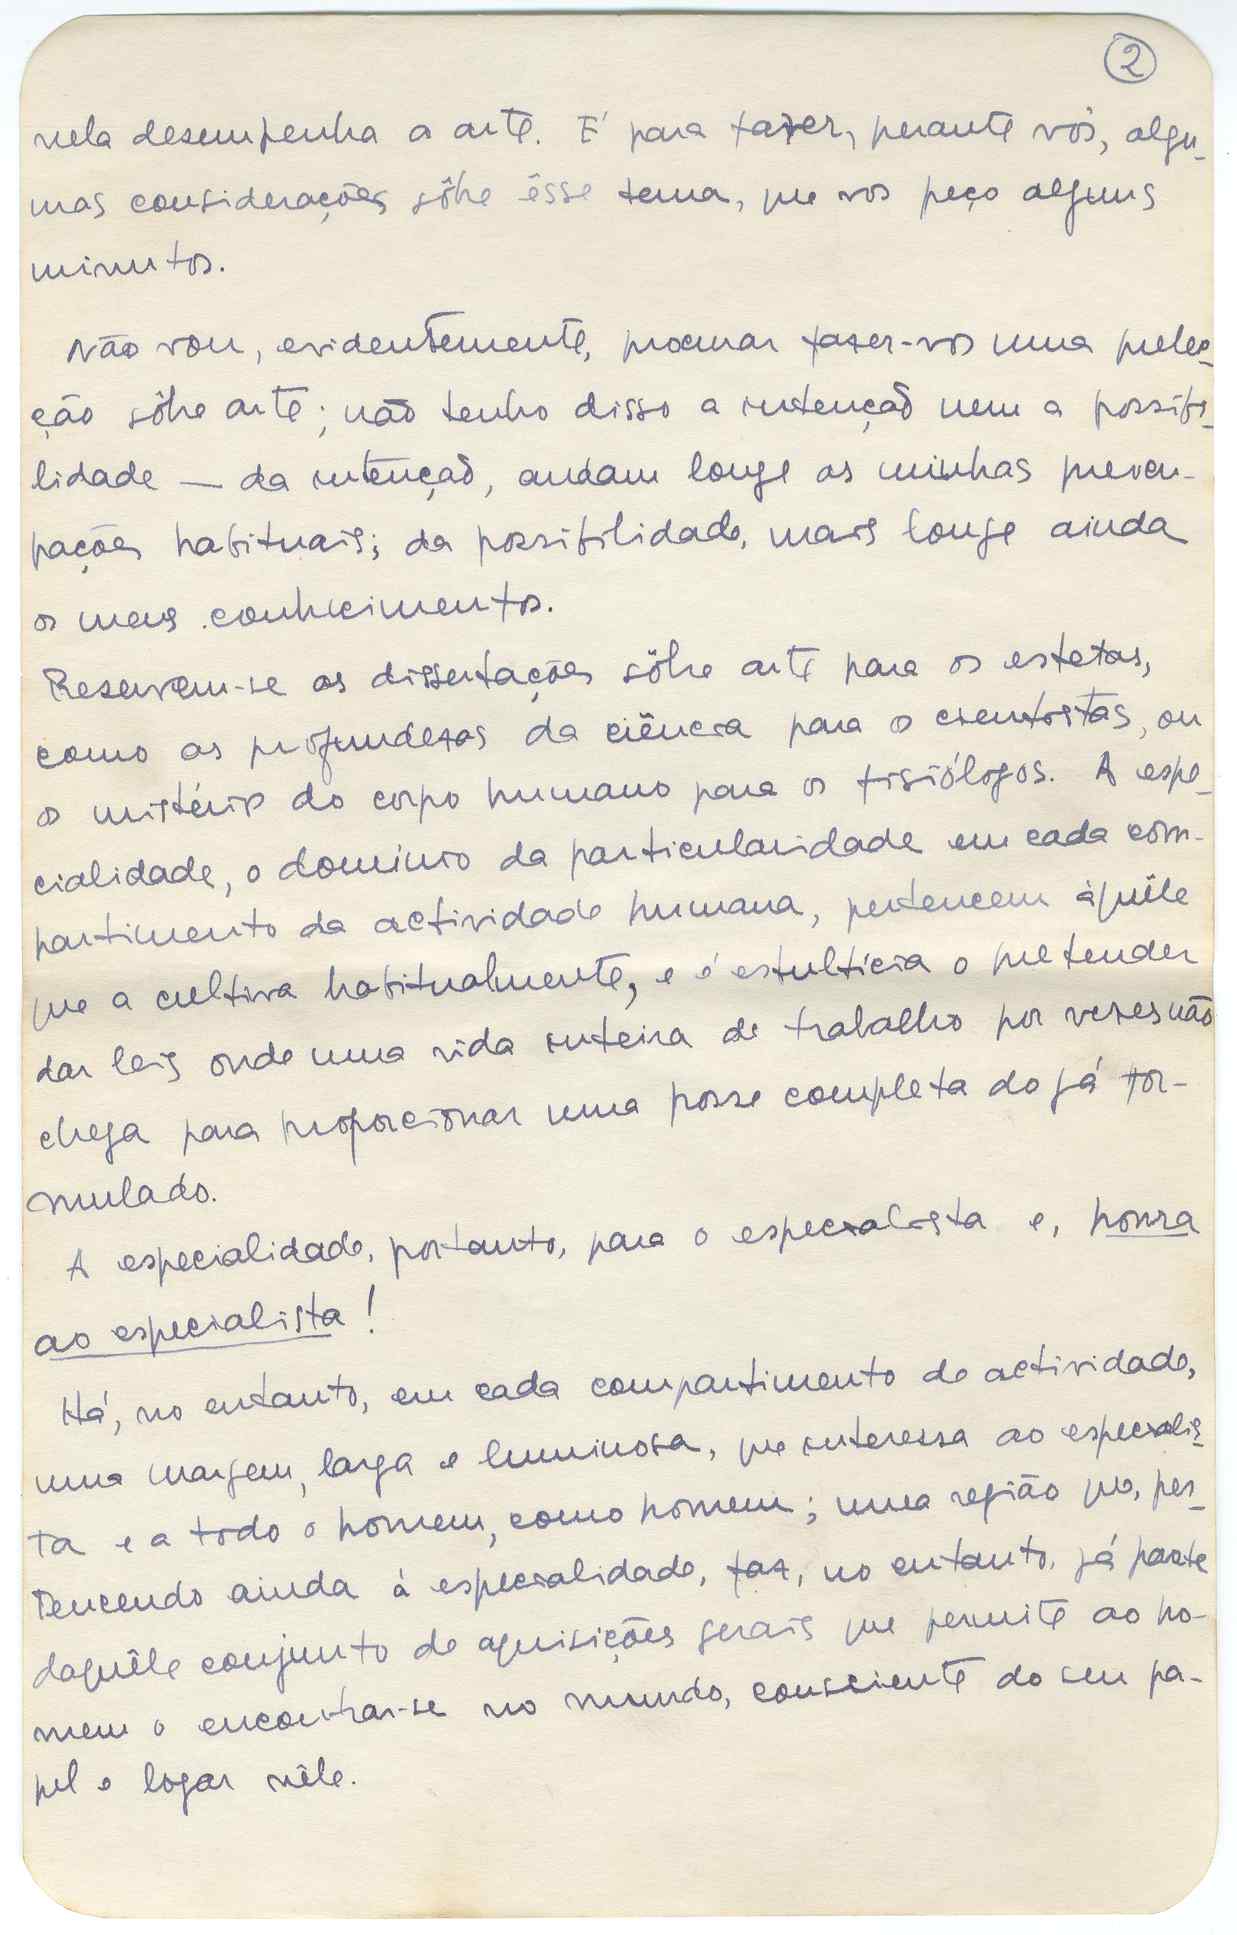 2
nela desempenha a arte. É para fazer, perante vós, algu-
mas considerações sôbre êsse tema, que vos peço alguns
minutos.
Não vou, evidentemente, procurar fazer-vos uma prelec-
ção sôbre arte; não tenho disso a intenção nem a possibi-
lidade — da intenção, andam longe as minhas preocu-
pações habituais; da possibilidade, mais longe ainda
os meus conhecimentos.
Reservem-se as dissertações sôbre arte para os estetas,
como as profundezas da ciência para o cientistas, ou
o mistério do corpo humano para os fisiólogos. A espe-
cialidade, o domínio da particularidade em cada com-
partimento da actividade humana, pertencem àquêle
que a cultiva habitualmente, e é estultícia o pretender
dar leis onde uma vida inteira de trabalho por vezes não
chega para proporcionar uma posse completa do já for-
mulado.
A especialidade, portanto, para o especialista e, honra
ao especialista!
Há, no entanto, em cada compartimento de actividade,
uma margem, larga e luminosa, que interessa ao especialis-
ta e a todo o homem, como homem; uma região que, per-
tencendo ainda à especialidade, faz, no entanto, já parte
daquêle conjunto de aquisições gerais que permite ao ho-
mem o encontrar-se no mundo, consciente do seu pa-
pel e logar nêle.